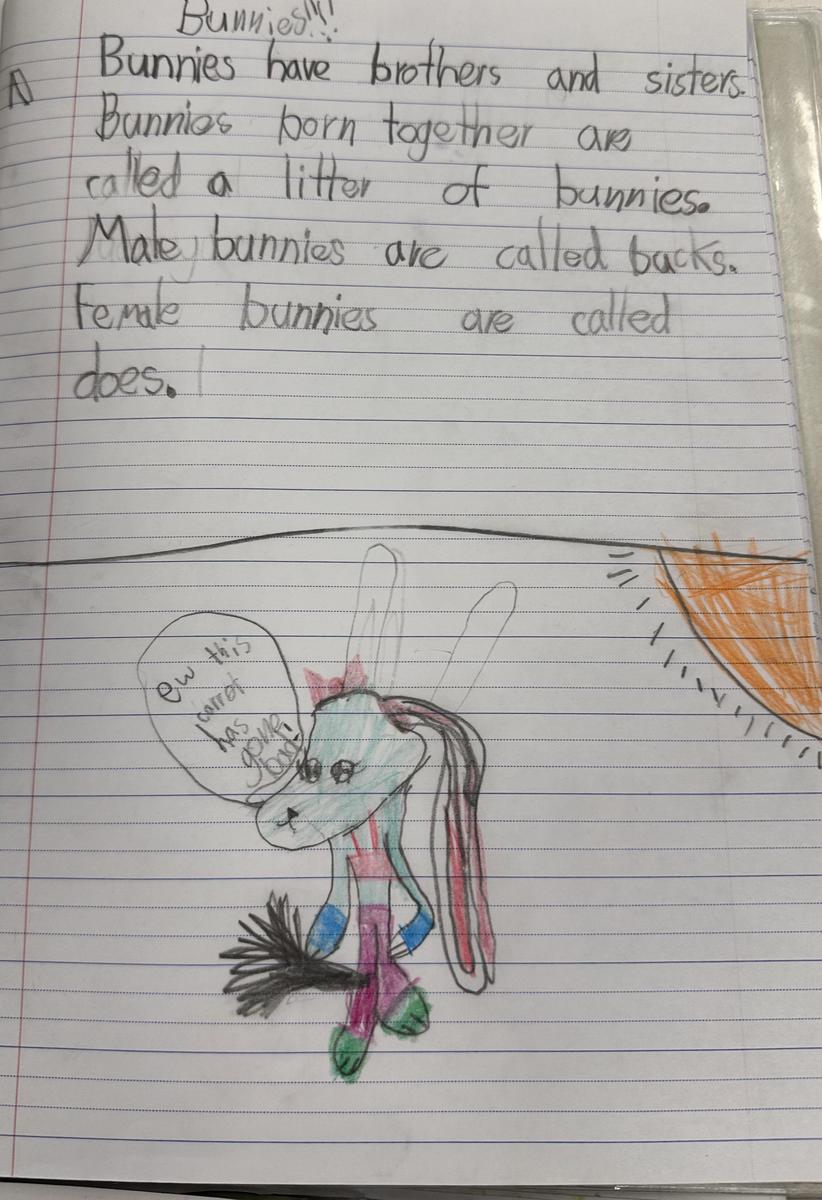 Bunnies!!!
Bunnies have brothers and sisters.
Bunnies born together are
called a litter of bunnies.
Male bunnies are called bucks.
Female bunnies are called
does.
ew this
carrot
has
gone
bad!